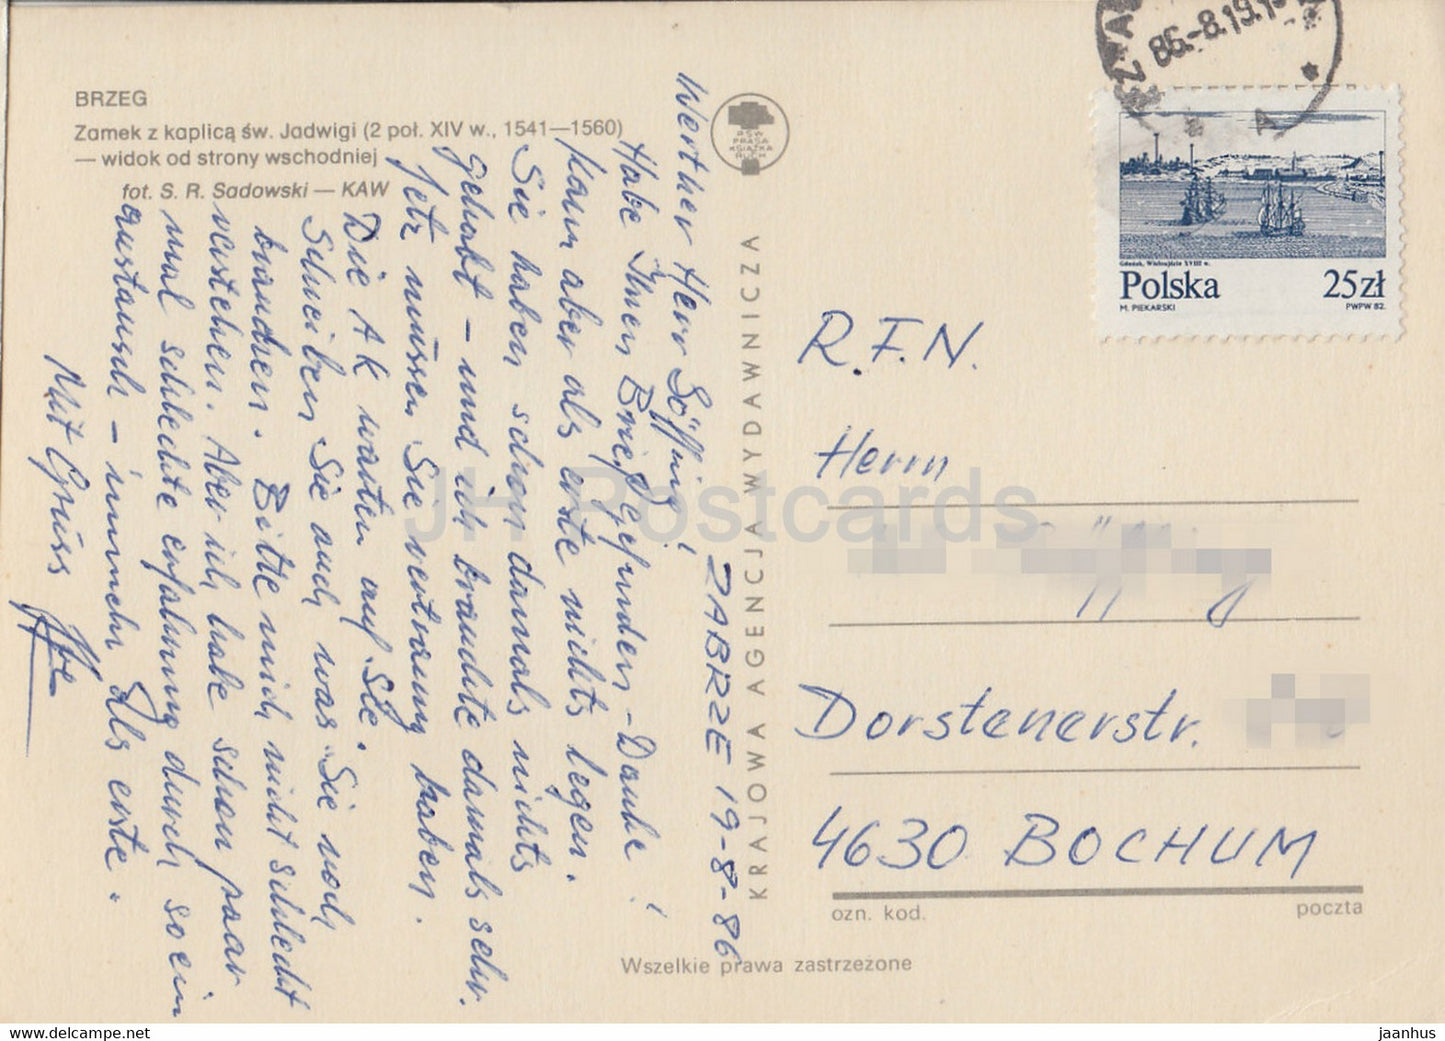 BRZEG
Zamek z kaplicą św. Jadwigi (2 poł. XIV w., 1541—1560)
— widok od strony wschodniej
fot. S. R. Sadowski — KAW
ZABRZE 19-8-86
Werther Herr Söffnig!
Habe Ihnen Brief gefunden - Danke!
kann aber als erste nichts legen.
Sie haben schon damals nichts
gehabt - und ich brauchte damals sehr.
Jetz müssen Sie vertraung haben.
Die AK warten auf Sie.
Schreiben Sie auch was Sie noch
brauchen. Bitte mich nicht schlecht
verstehen. Aber ich habe schon paar
mal schlechte erfahrung durch so ein
austausch - immehr als erste.
Mit Grüss
RSW
PRASA
KSIĄŻKA
RUCH
KRAJOWA AGENCJA WYDAWNICZA
86.-8.19.1
A
Gdańsk, Wisłoujście XVIII w.
Polska 25 zł
M. PIEKARSKI PWPW 82.
R.F.N.
Herrn
Dorstenerstr.
4630 BOCHUM
ozn. kod. poczta
Wszelkie prawa zastrzeżone
JH Postcards
www.delcampe.net
jaanhus